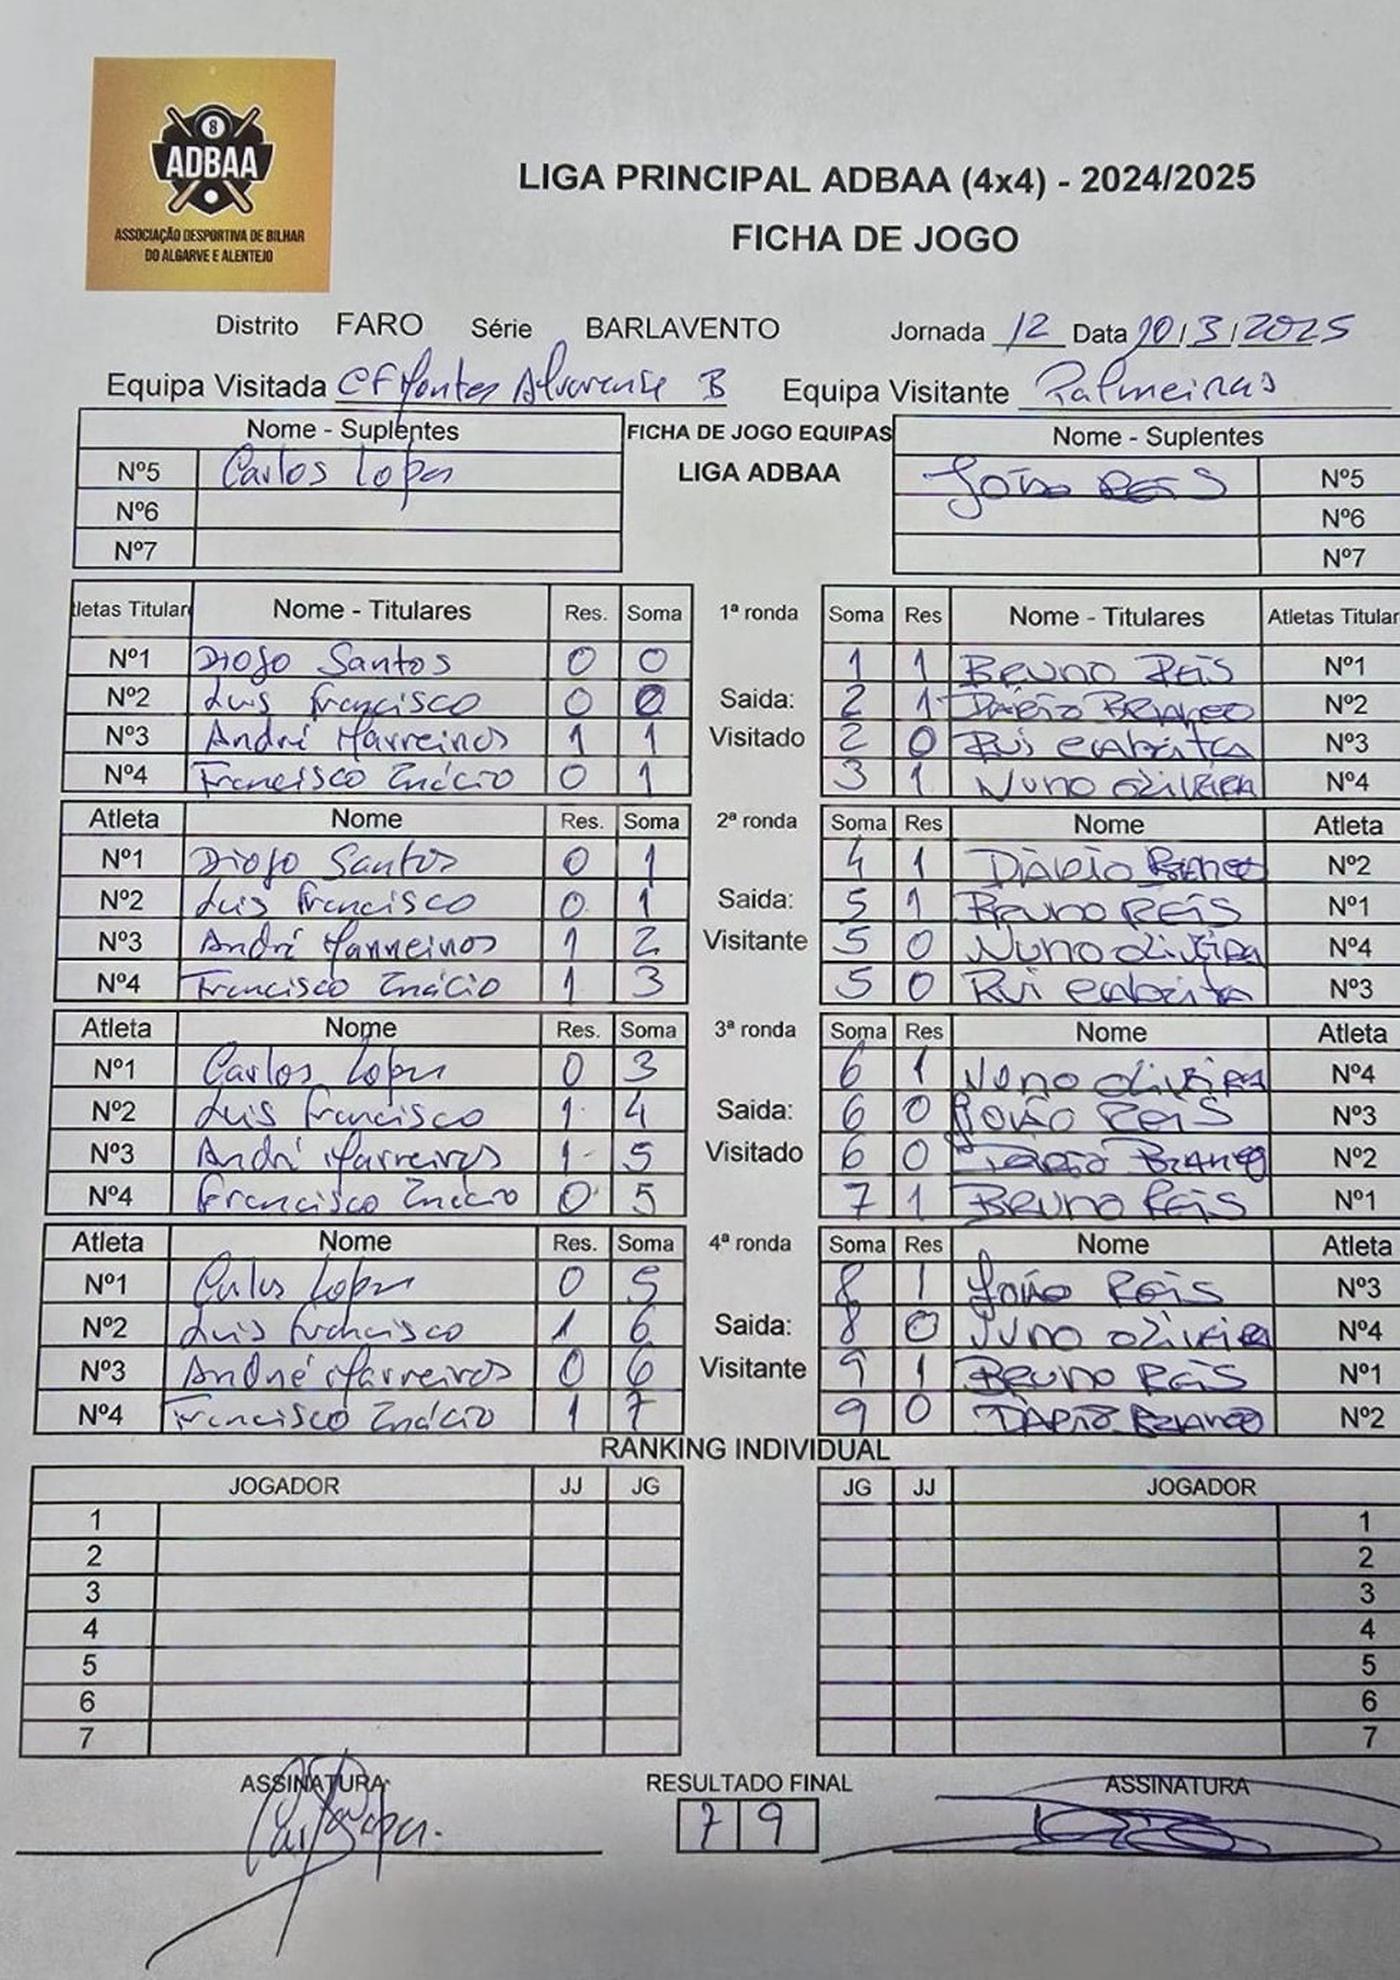 8
ADBAA
ASSOCIAÇÃO DESPORTIVA DE BILHAR
DO ALGARVE E ALENTEJO
LIGA PRINCIPAL ADBAA (4x4) - 2024/2025
FICHA DE JOGO
Distrito FARO Série BARLAVENTO Jornada 12 Data 20/3/2025
Equipa Visitada CF Montes Alvorense B Equipa Visitante Palmeiras
Nome - Suplentes FICHA DE JOGO EQUIPAS Nome - Suplentes
Nº5 Carlos Lopes LIGA ADBAA João Reis Nº5
Nº6 Nº6
Nº7 Nº7
tletas Titular Nome - Titulares Res. Soma 1ª ronda Soma Res Nome - Titulares Atletas Titular
Nº1 Diogo Santos 0 0 1 1 Bruno Reis Nº1
Nº2 Luis Francisco 0 0 Saida: 2 1 Dário Branco Nº2
Nº3 André Marreiros 1 1 Visitado 2 0 Rui Cabrita Nº3
Nº4 Francisco Inácio 0 1 3 1 Nuno Oliveira Nº4
Atleta Nome Res. Soma 2ª ronda Soma Res Nome Atleta
Nº1 Diogo Santos 0 1 4 1 Dário Branco Nº2
Nº2 Luis Francisco 0 1 Saida: 5 1 Bruno Reis Nº1
Nº3 André Marreiros 1 2 Visitante 5 0 Nuno Oliveira Nº4
Nº4 Francisco Inácio 1 3 5 0 Rui Cabrita Nº3
Atleta Nome Res. Soma 3ª ronda Soma Res Nome Atleta
Nº1 Carlos Lopes 0 3 6 1 Nuno Oliveira Nº4
Nº2 Luis Francisco 1 4 Saida: 6 0 João Reis Nº3
Nº3 André Marreiros 1 5 Visitado 6 0 Dário Branco Nº2
Nº4 Francisco Inácio 0 5 7 1 Bruno Reis Nº1
Atleta Nome Res. Soma 4ª ronda Soma Res Nome Atleta
Nº1 Carlos Lopes 0 5 8 1 João Reis Nº3
Nº2 Luis Francisco 1 6 Saida: 8 0 Nuno Oliveira Nº4
Nº3 André Marreiros 0 6 Visitante 9 1 Bruno Reis Nº1
Nº4 Francisco Inácio 1 7 9 0 Dário Branco Nº2
RANKING INDIVIDUAL
JOGADOR JJ JG JG JJ JOGADOR
1 1
2 2
3 3
4 4
5 5
6 6
7 7
ASSINATURA RESULTADO FINAL ASSINATURA
7 9